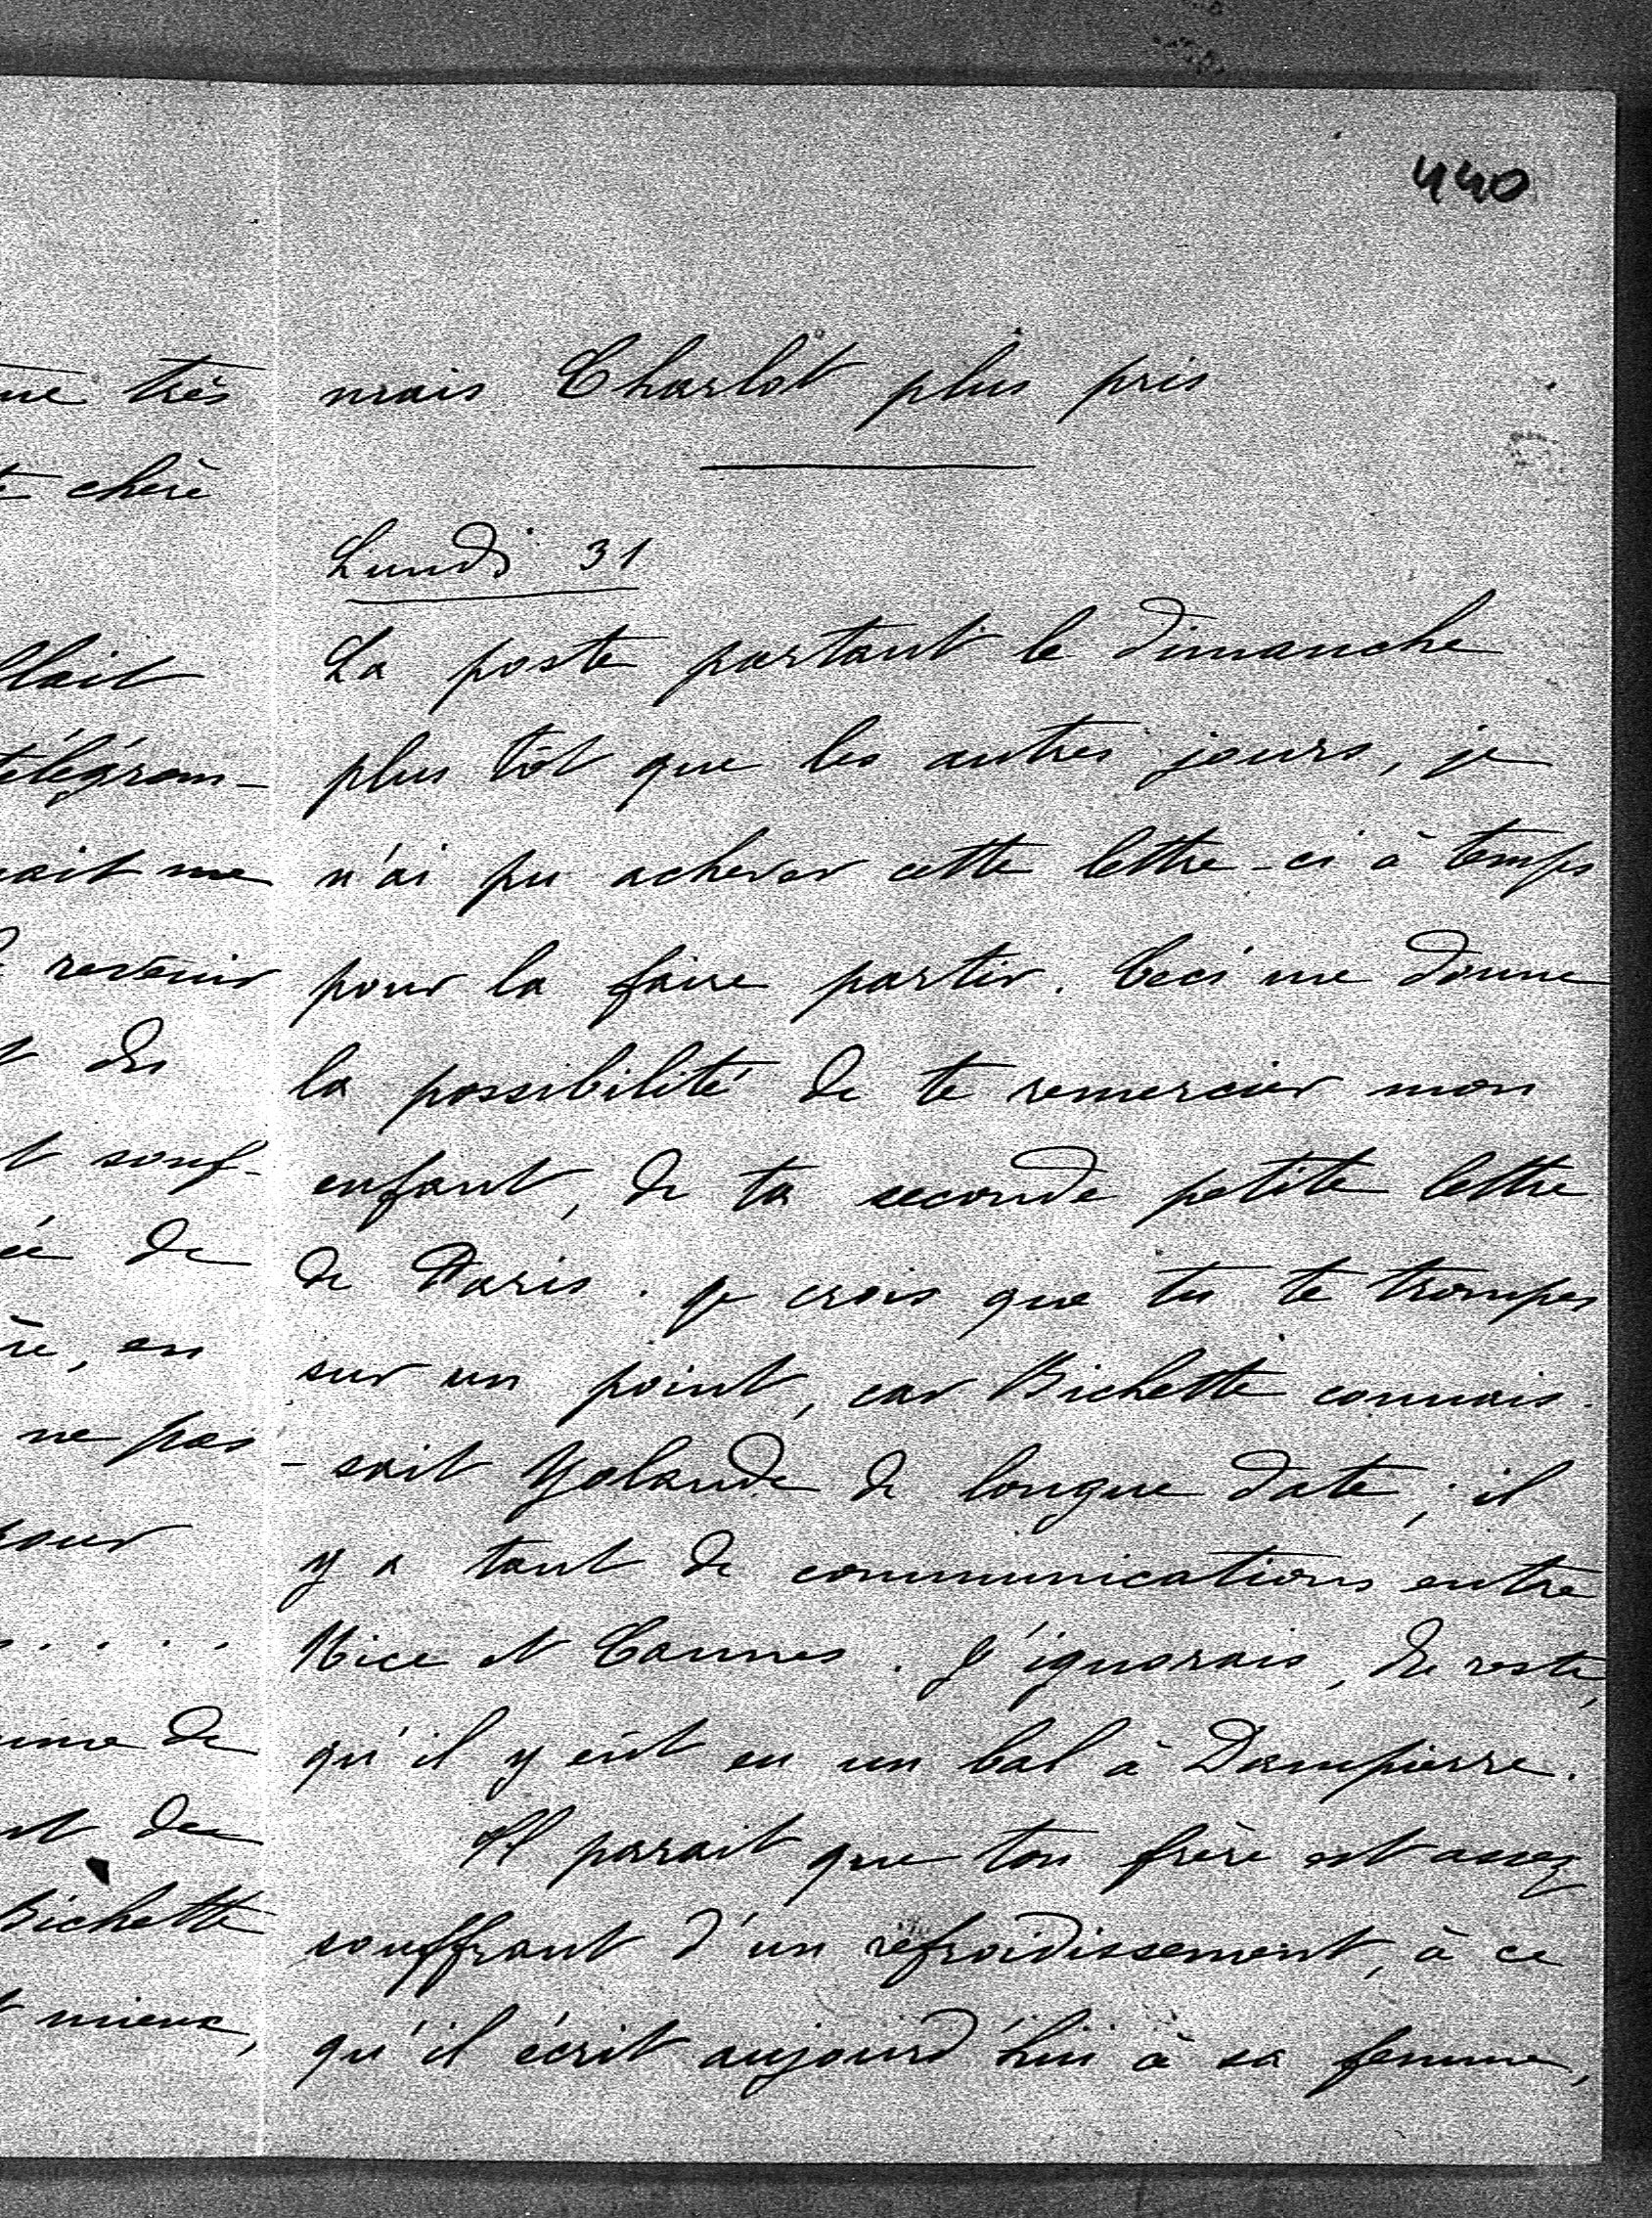 440
mais Charlot plus pris
Lundi 31
La poste partant le dimanche
plus tôt que les autres jours, je
n'ai pu achever cette lettre-ci à temps
pour la faire partir. Ceci me donne
la possibilité de te remercier mon
enfant, de ta seconde petite lettre
de Paris. Je crois que tu te trompes
sur un point, car Bichette connais-
-sait Yolande de longue date; il
y a tant de communications entre
Nice et Cannes. J'ignorais, du reste,
qu'il y eût eu un bal à Dampierre.
Il parait que ton frère est assez
souffrant d'un refroidissement, à ce
qu'il écrit aujourd'hui à sa femme,
très
chère
télégram-
me
revenir
des
souf-
de
en
ne pas
de
de
Bichette
mieux,